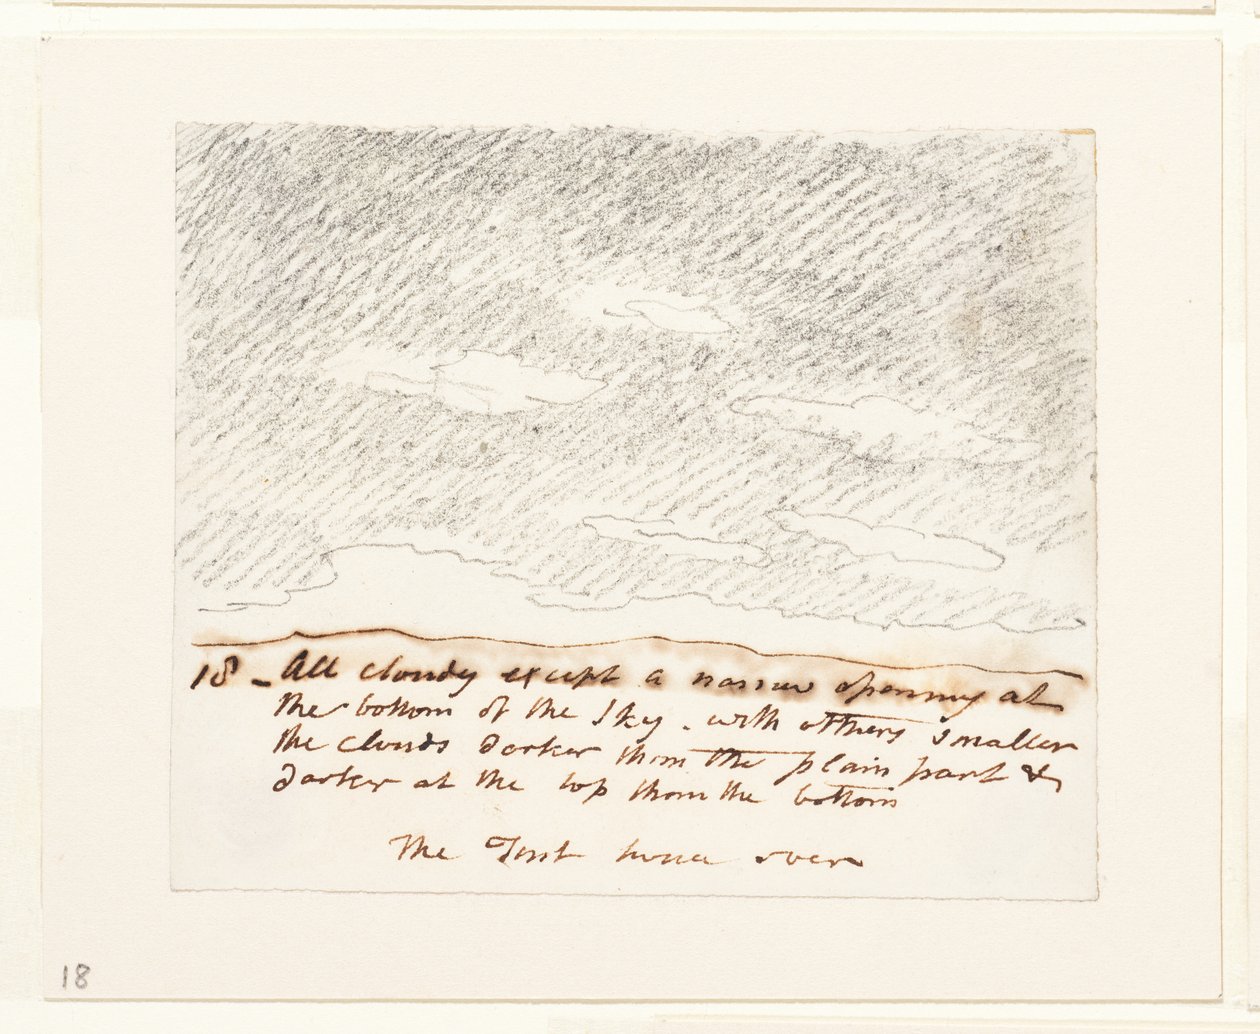 18 - All cloudy except a narrow opening at
the bottom of the Sky - with others smaller
the clouds darker than the plain part &
darker at the top than the bottom
The Tint twice over
18